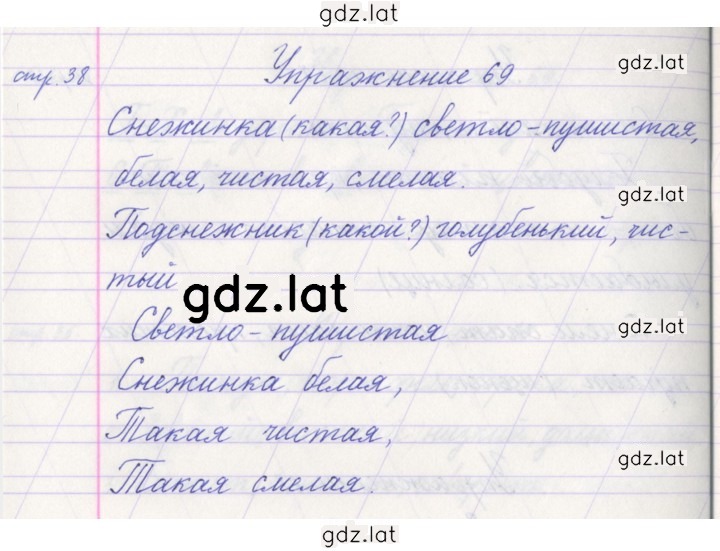 gdz.lat
стр. 38 Упражнение 69 gdz.lat
Снежинка (какая?) светло-пушистая,
белая, чистая, смелая.
gdz.lat
Подснежник (какой?) голубенький, чис-
тый
gdz.lat
Светло-пушистая
gdz.lat
Снежинка белая,
Такая чистая,
gdz.lat
Такая смелая.
gdz.lat